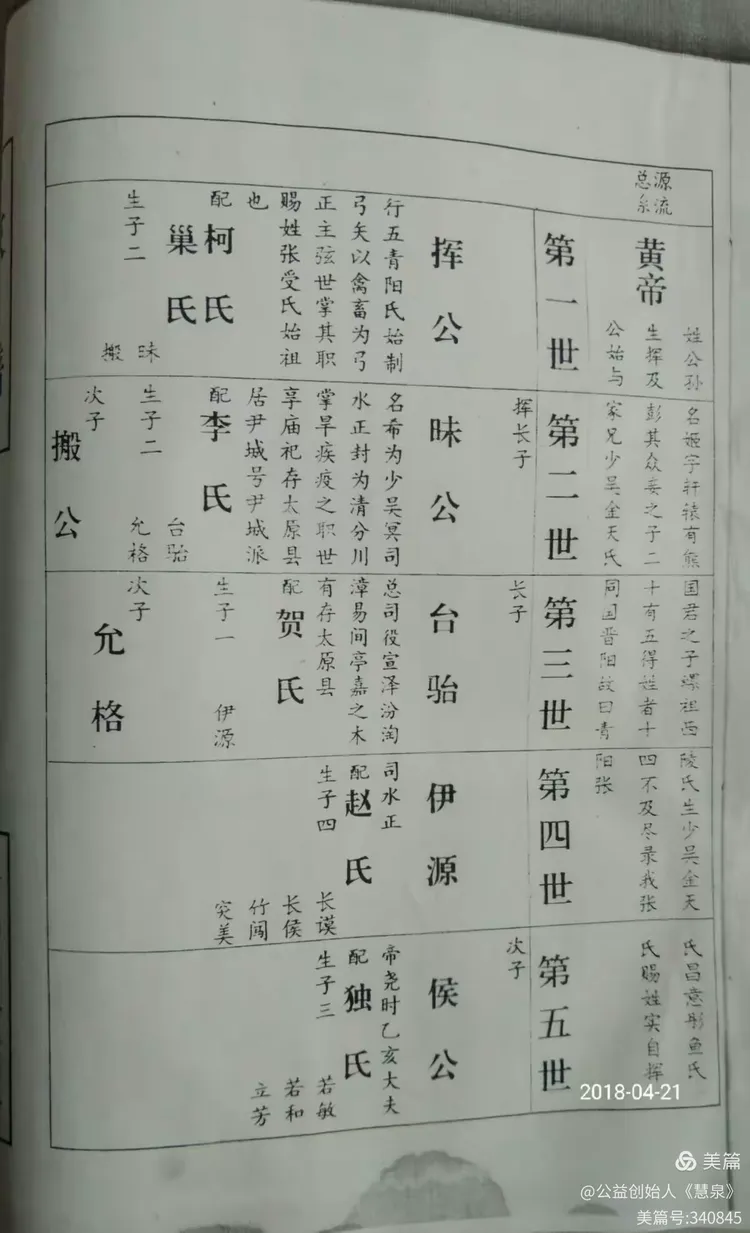 源流
总系
黄帝
姓公孙名姬字轩辕有熊国君之子嫘祖西陵氏生少昊金天氏昌意彤鱼氏
生挥及彭其众妾之子二十有五得姓者十四不及尽录我张氏赐姓实自挥
公始与家兄少昊金天氏同国晋阳故曰青阳张
第一世
挥公
行五青阳氏始制
弓矢以禽畜为弓
正主弦世掌其职
赐姓张受氏始祖
也
配柯氏
巢氏
生子二
昧
搬
第二世
挥长子
昧公
名希为少昊冥司
水正封为清分川
掌旱疾疫之职世
享庙祀存太原县
居尹城号尹城派
配李氏
生子二
台骀
允格
次子
搬公
第三世
长子
台骀
总司役宣泽汾洮
漳易间亭嘉之木
有存太原县
配贺氏
生子一
伊源
次子
允格
第四世
伊源
司水正
配赵氏
生子四
长谟
长侯
竹闯
完美
第五世
次子
侯公
帝尧时乙亥大夫
配独氏
生子三
若敏
若和
立芳
2018-04-21
美篇
@公益创始人《慧泉》
美篇号:340845